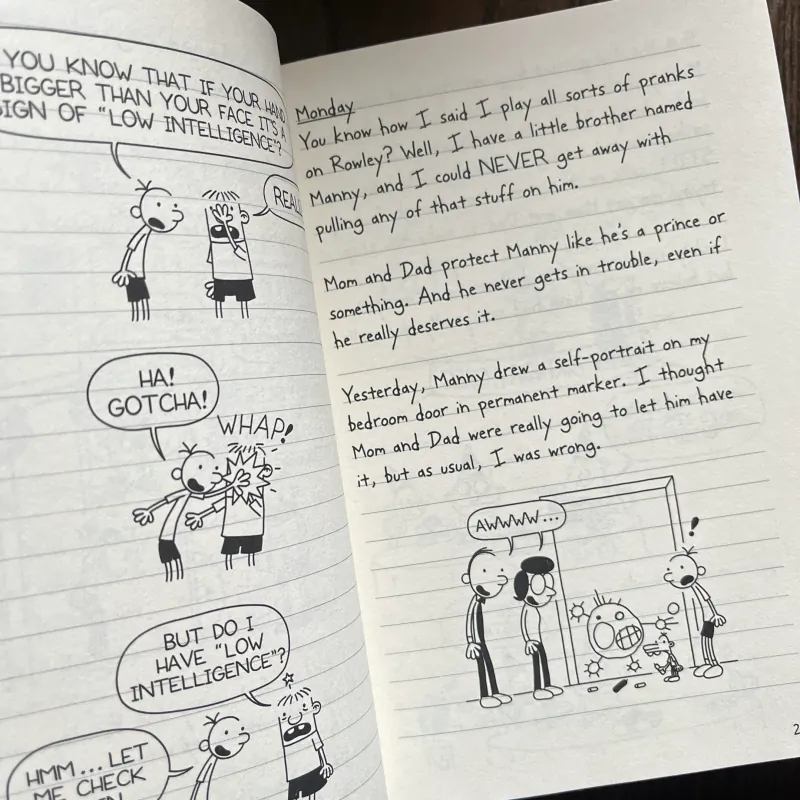 YOU KNOW THAT IF YOUR HAND
BIGGER THAN YOUR FACE IT'S A
SIGN OF "LOW INTELLIGENCE"?
HA!
GOTCHA!
WHAP!
BUT DO I
HAVE "LOW
INTELLIGENCE"?
HMM... LET
ME CHECK
Monday
You know how I said I play all sorts of pranks
on Rowley? Well, I have a little brother named
Manny, and I could NEVER get away with
pulling any of that stuff on him.
Mom and Dad protect Manny like he's a prince or
something. And he never gets in trouble, even if
he really deserves it.
Yesterday, Manny drew a self-portrait on my
bedroom door in permanent marker. I thought
Mom and Dad were really going to let him have
it, but as usual, I was wrong.
AWWWW...
!
2